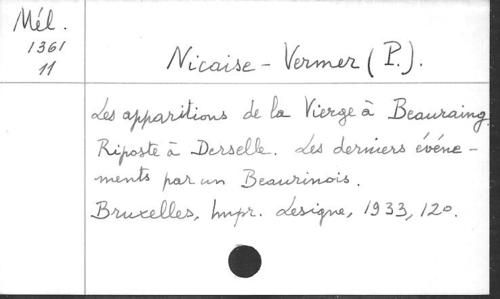 Mél.
1361
11
Nicaise - Vermer (P.).
Les apparitions de la Vierge à Beauraing.
Riposte à Derselle. Les derniers événe-
ments par un Beaurinois.
Bruxelles, Impr. Lesigne, 1933, 12o.